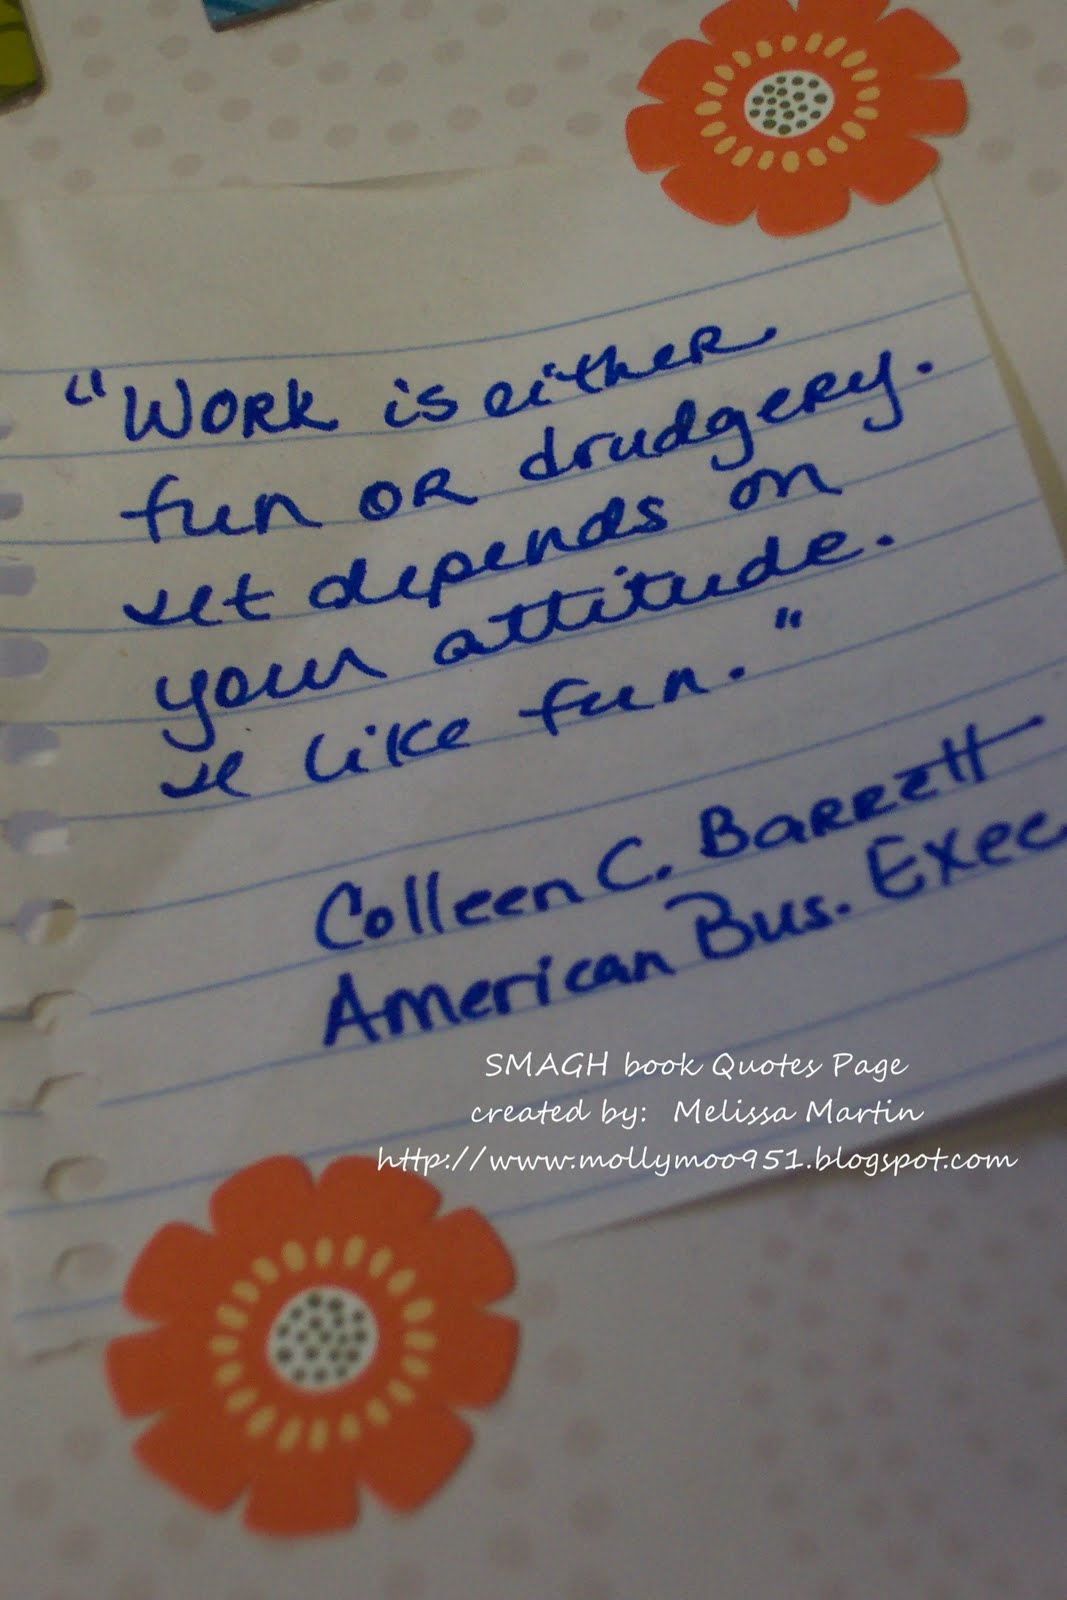 "Work is either
fun or drudgery.
It depends on
your attitude.
I like fun."
Colleen C. Barrett
American Bus. Exec
SMAGH book Quotes Page
created by: Melissa Martin
http://www.mollymoo951.blogspot.com